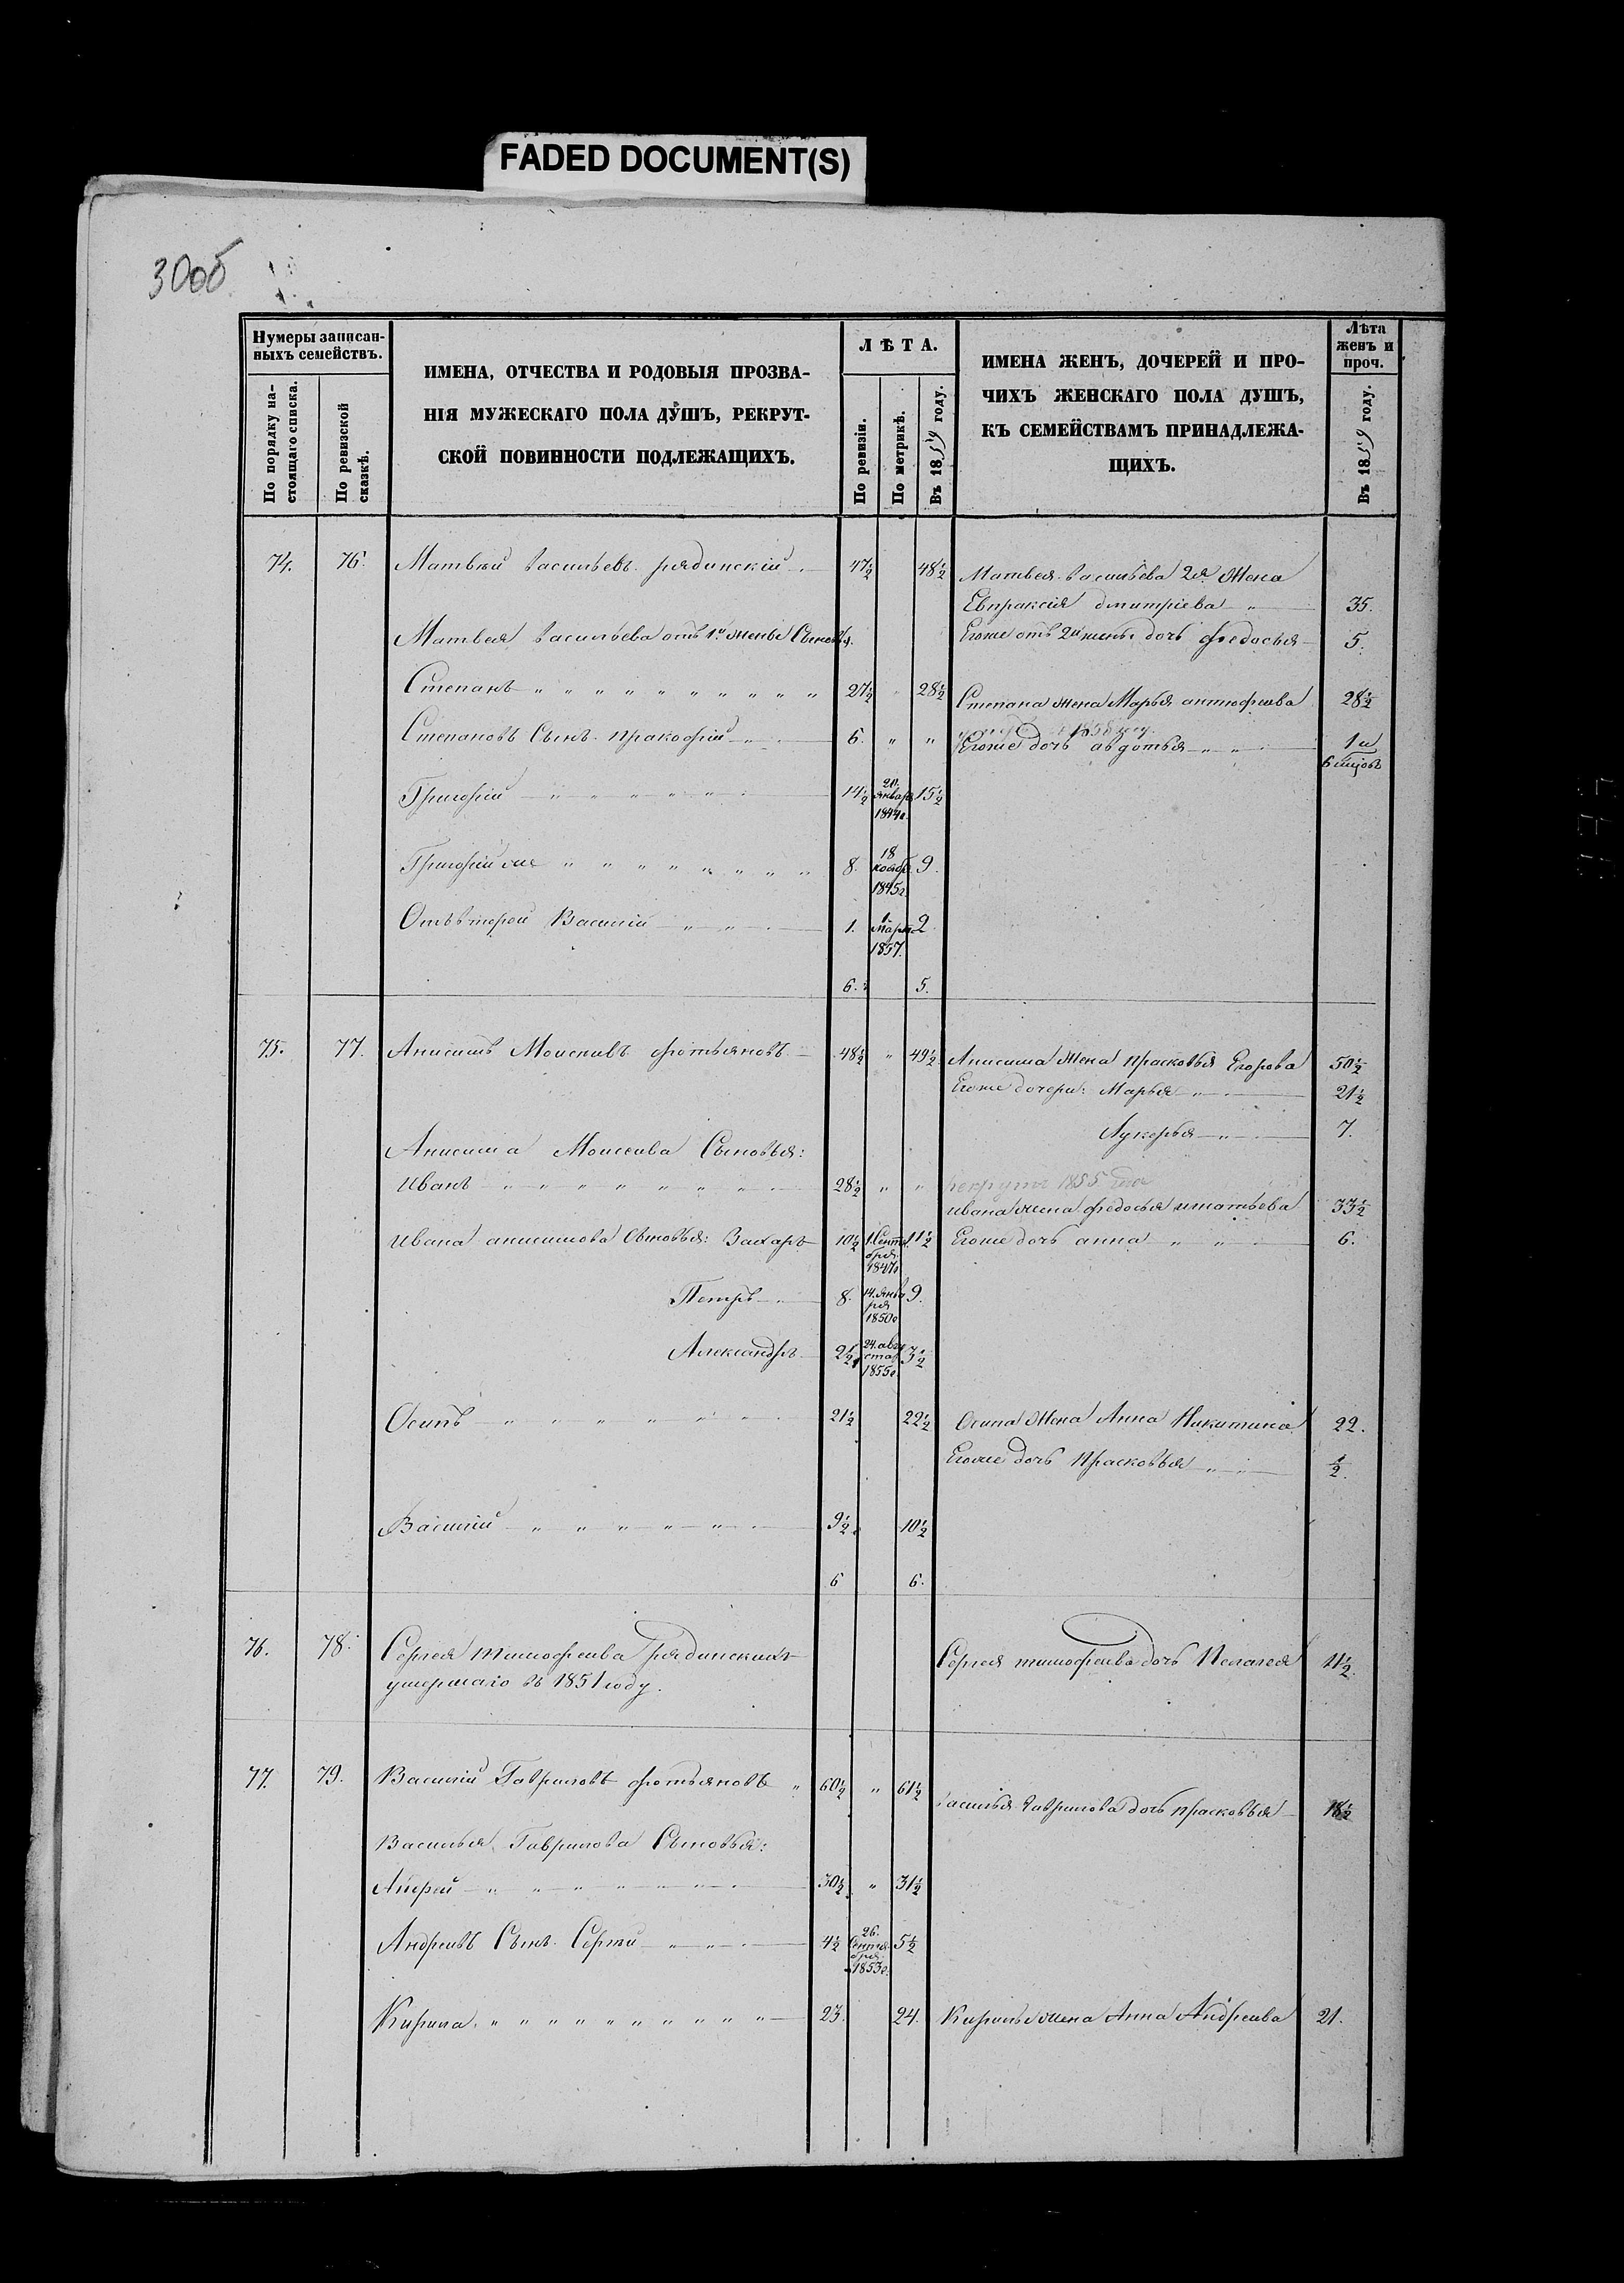 FADED DOCUMENT(S)
30об
Нумеры записан-
ныхъ семействъ.
По порядку на-
стоящаго списка.
По ревизской
сказкѣ.
ИМЕНА, ОТЧЕСТВА И РОДОВЫЯ ПРОЗВА-
НІЯ МУЖЕСКАГО ПОЛА ДУШЪ, РЕКРУТ-
СКОЙ ПОВИННОСТИ ПОДЛЕЖАЩИХЪ.
ЛѢТА.
По ревизіи.
По метрикѣ.
Въ 1859 году.
ИМЕНА ЖЕНЪ, ДОЧЕРЕЙ И ПРО-
ЧИХЪ ЖЕНСКАГО ПОЛА ДУШЪ,
КЪ СЕМЕЙСТВАМЪ ПРИНАДЛЕЖА-
ЩИХЪ.
Лѣта
женъ и
проч.
Въ 1859 году.
74. 76. Матвѣй Васильевъ рядинскій 47½ 48½ Матвея Васильева 2я Жена
Евпраксія дмитріева „ 35.
Матвея Васильева отъ 1й жены Сыновья. Егоже отъ 2й жены дочь федосья 5.
Степанъ „ „ „ „ „ „ „ „ „ „ 27½ „ 28½ Степана жена Марья антюфеева 28½
Степановъ Сынъ пракофій „ 6. „ „ 1858 году
Егоже дочь авдотья „ „ 1 и
6 мцовъ
Григорій „ „ „ „ „ „ 14½ 20. Января 1844г. 15½
Григорій же „ „ „ „ „ „ „ „ 8. 18 ноябр. 1845г. 9.
Отъ второй Василій „ „ 1. 1. Март. 1857. 2
6. 5.
75. 77. Анисимъ Моисеивъ фотьяновъ 48½ „ 49½ Анисима Жена прасковья Егорова 50½
Егоже дочери: Марья „ 21½
Лукерья „ 7.
Анисима Моисеива Сыновья:
Иванъ „ „ „ „ „ „ „ „ 28½ „ „ рекрутъ 1855 года
Ивана жена федосья игнатьева 33½
Ивана анисимова Сыновья: Захаръ 10½ 1 Сентября 1847г. 11½ Егоже дочь анна „ „ 6.
Петръ 8. 14. Января 1850г 9.
Александръ 2½ 24. августа 1855г 3½
Осипъ „ „ „ „ „ „ 21½ 22½ Осипа Жена Анна Никитина 22.
Егоже дочь прасковья „ „ ½.
Василій „ „ „ „ „ 9½ 10½
6 6.
76. 78. Сергея тимофеива рядинскихъ Сергея тимофеива дочь Пелагея 11½.
умершаго въ 1851 году.
77. 79. Василій Гавриловъ фотьяновъ „ 60½ „ 61½
Василья Гаврилова дочь прасковья 18½
Василья Гаврилова Сыновья:
Андрей „ „ „ „ „ „ 30½ „ 31½
Андреивъ Сынъ Сергей „ „ 4½ 26. Сентября 1853г. 5½
Кирила „ „ „ „ „ „ „ „ „ „ 23. 24. Кирилы жена Анна Андреива 21.